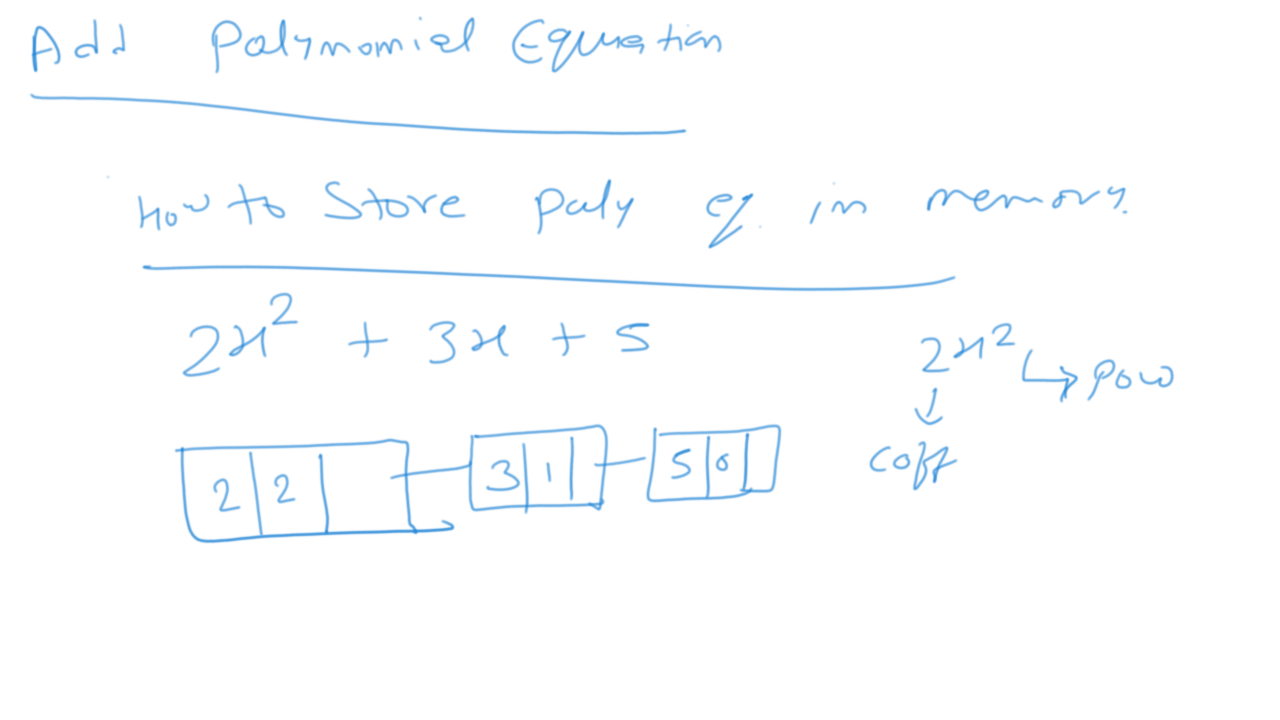 Add Polynomial Equation
How to Store Poly eq. in memory.
2x² + 3x + 5
2x² → pow
↓
coff
2 | 2 | 3 | 1 | 5 | 0